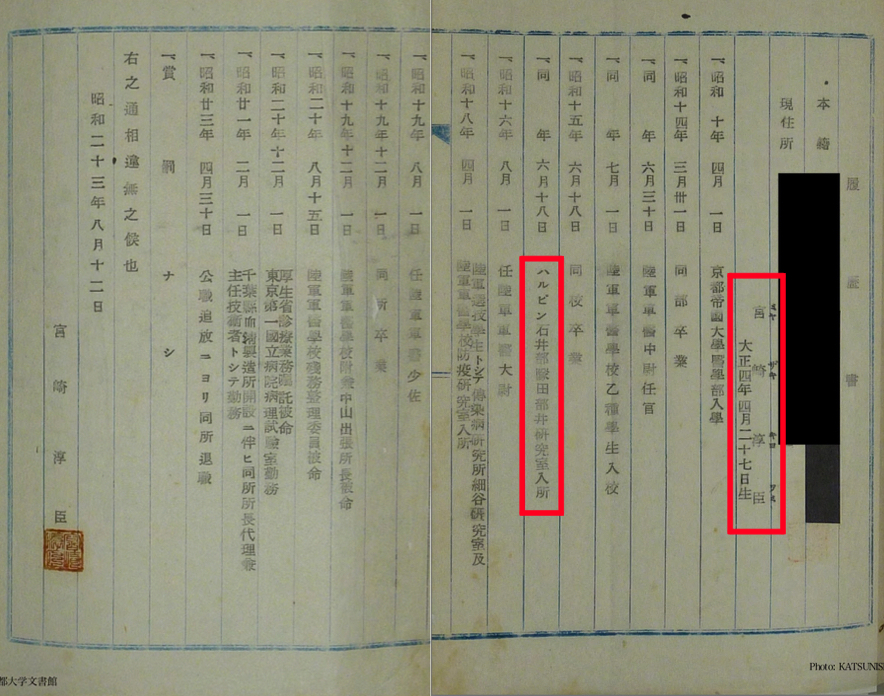 履歴書
本籍
現住所
宮崎淳臣
ミヤザキ
大正四年四月二十七日生
一、昭和十年四月一日 京都帝國大學醫學部入學
一、昭和十四年三月卅一日 同部卒業
一、同年六月三十日 陸軍軍醫中尉任官
一、同年七月一日 陸軍軍醫學校乙種學生入校
一、昭和十五年六月十八日 同校卒業
一、同年六月十八日 ハルピン石井部隊田部井研究室入所
一、昭和十六年八月一日 任陸軍軍醫大尉
一、昭和十八年四月一日 陸軍選技學生トシテ傳染病研究所細谷研究室及
陸軍軍醫學校防疫研究室入所
一、昭和十九年八月一日 任陸軍軍醫少佐
一、昭和十九年十二月一日 同所卒業
一、昭和十九年十二月一日 陸軍軍醫學校附兼中山出張所長被命
一、昭和二十年八月十五日 陸軍軍醫學校殘務整理委員被命
一、昭和二十年十二月一日 厚生省診療業務囑託被命
東京第一國立病院病理試驗室勤務
一、昭和廿一年二月一日 千葉縣血清製造所開設ニ伴ヒ同所所長代理兼
主任技術者トシテ勤務
一、昭和廿三年四月三十日 公職追放ニヨリ同所退職
一、賞罰 ナシ
右之通相違無之候也
昭和二十三年八月十二日
宮崎淳臣
都大学文書館
Photo: KATSUNIS